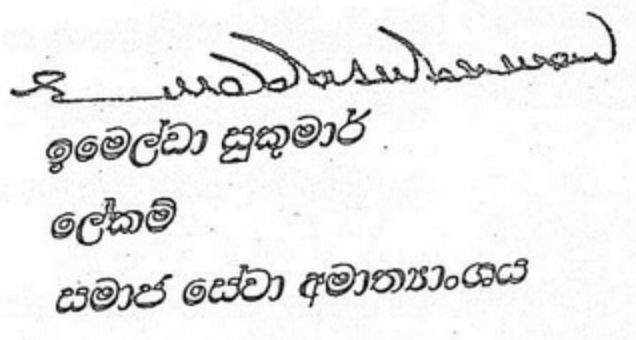 ඉමෙල්ඩා සුකුමාර්
ලේකම්
සමාජ සේවා අමාත්‍යාංශය